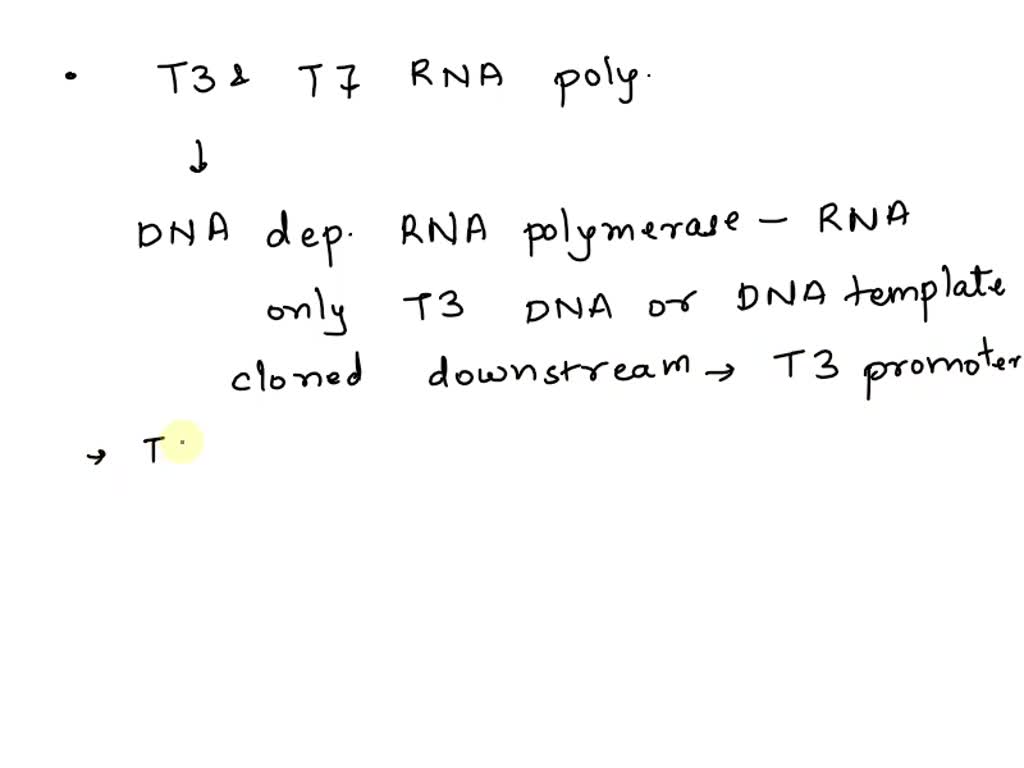 • T3 & T7 RNA poly.
↓
DNA dep. RNA polymerase – RNA
only T3 DNA or DNA template
cloned downstream → T3 promoter
→ T